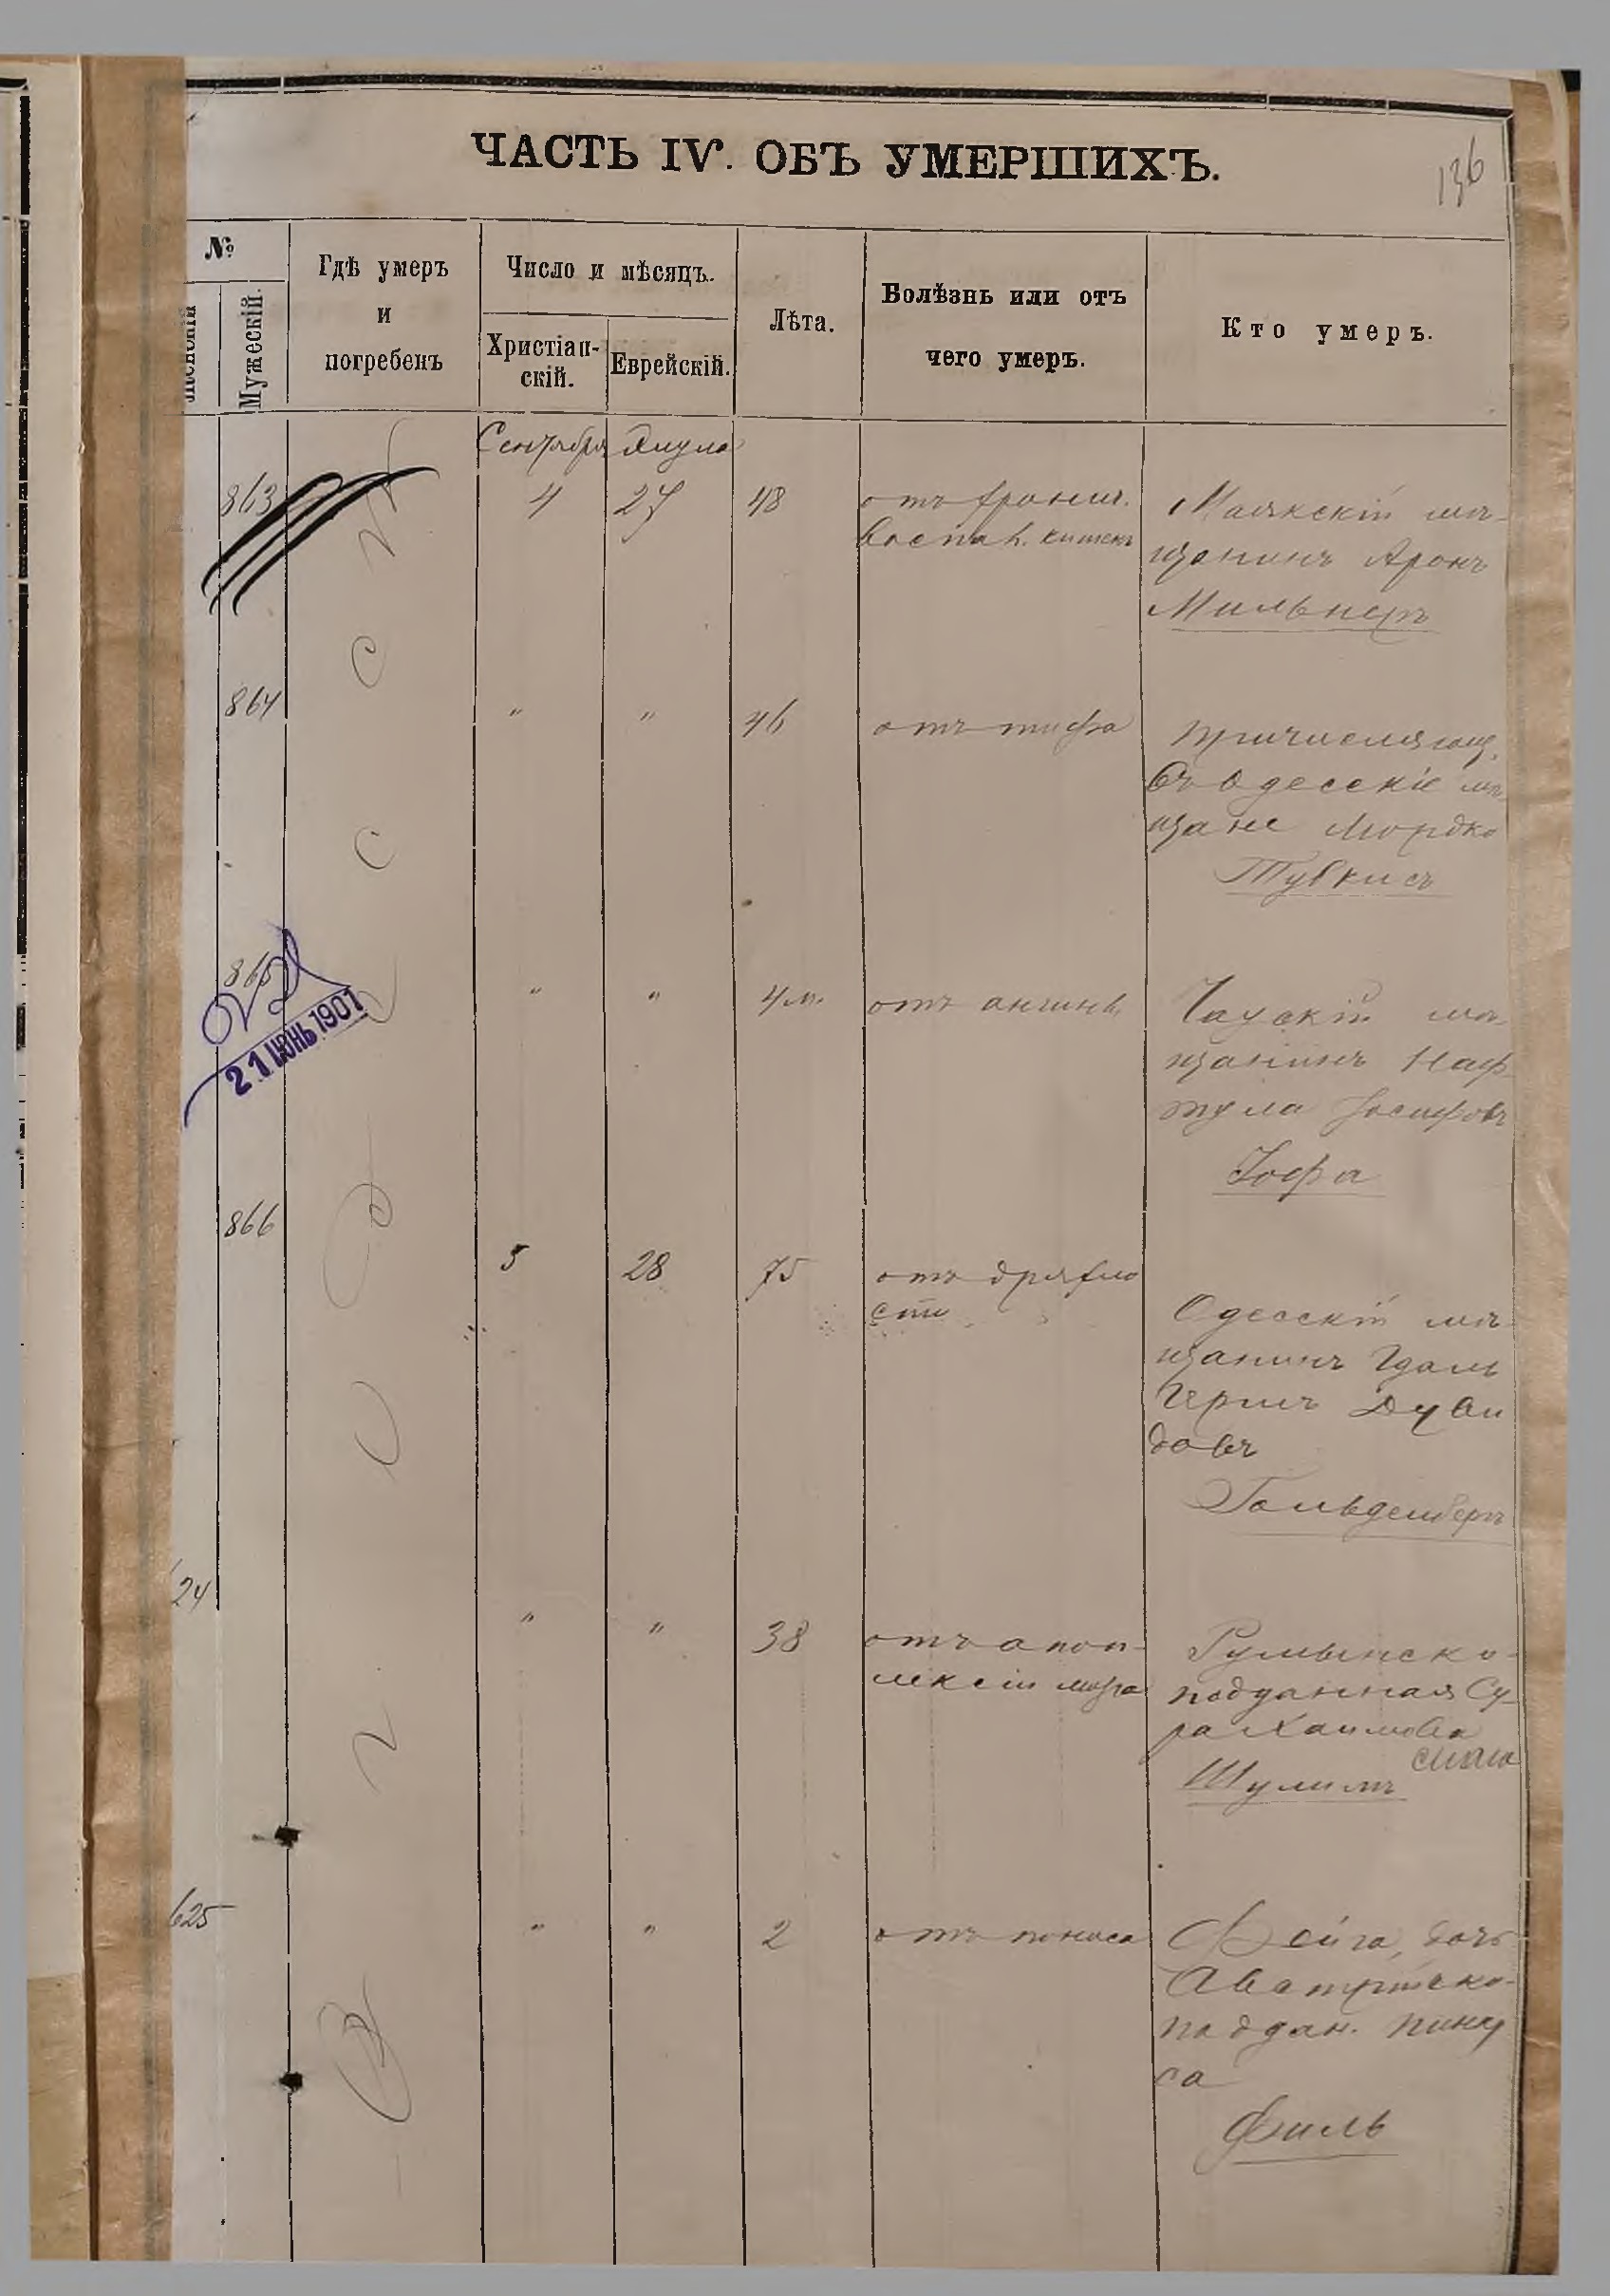 ЧАСТЬ IV. ОБЪ УМЕРШИХЪ.
136
№
Женскій
Мужескій.
Гдѣ умеръ
и
погребенъ
Число и мѣсяцъ.
Христіан-
скій.
Еврейскій.
Лѣта.
Болѣзнь или отъ
чего умеръ.
Кто умеръ.
Сентября Элула
863 4 27 48 отъ хронич.
воспал. кишекъ
Маякскій мѣ-
щанинъ Аронъ
Мильнеръ
864 " " 46 отъ тифа
Причисляющ.
въ Одесскіе мѣ-
щане Мордко
Тувкисъ
865 " " 4 м. отъ ангины
Чаусскій мѣ-
щанинъ Наф-
тула Іосифовъ
Іофа
21 ІЮНЬ 1907
866 5 28 75 отъ дряхло
сти
Одесскій мѣ-
щанинъ Гдаль
Гершъ Дуви
довъ
Гольденбергъ
24 " " 38 отъ апоп-
лексіи мозга
Румынско-
подданная Су-
ра Хаимова
Шулимъ
625 " " 2 отъ поноса
Фейга, дочь
Австрійско-
поддан. Пинку
са
Филь
В Одессѣ